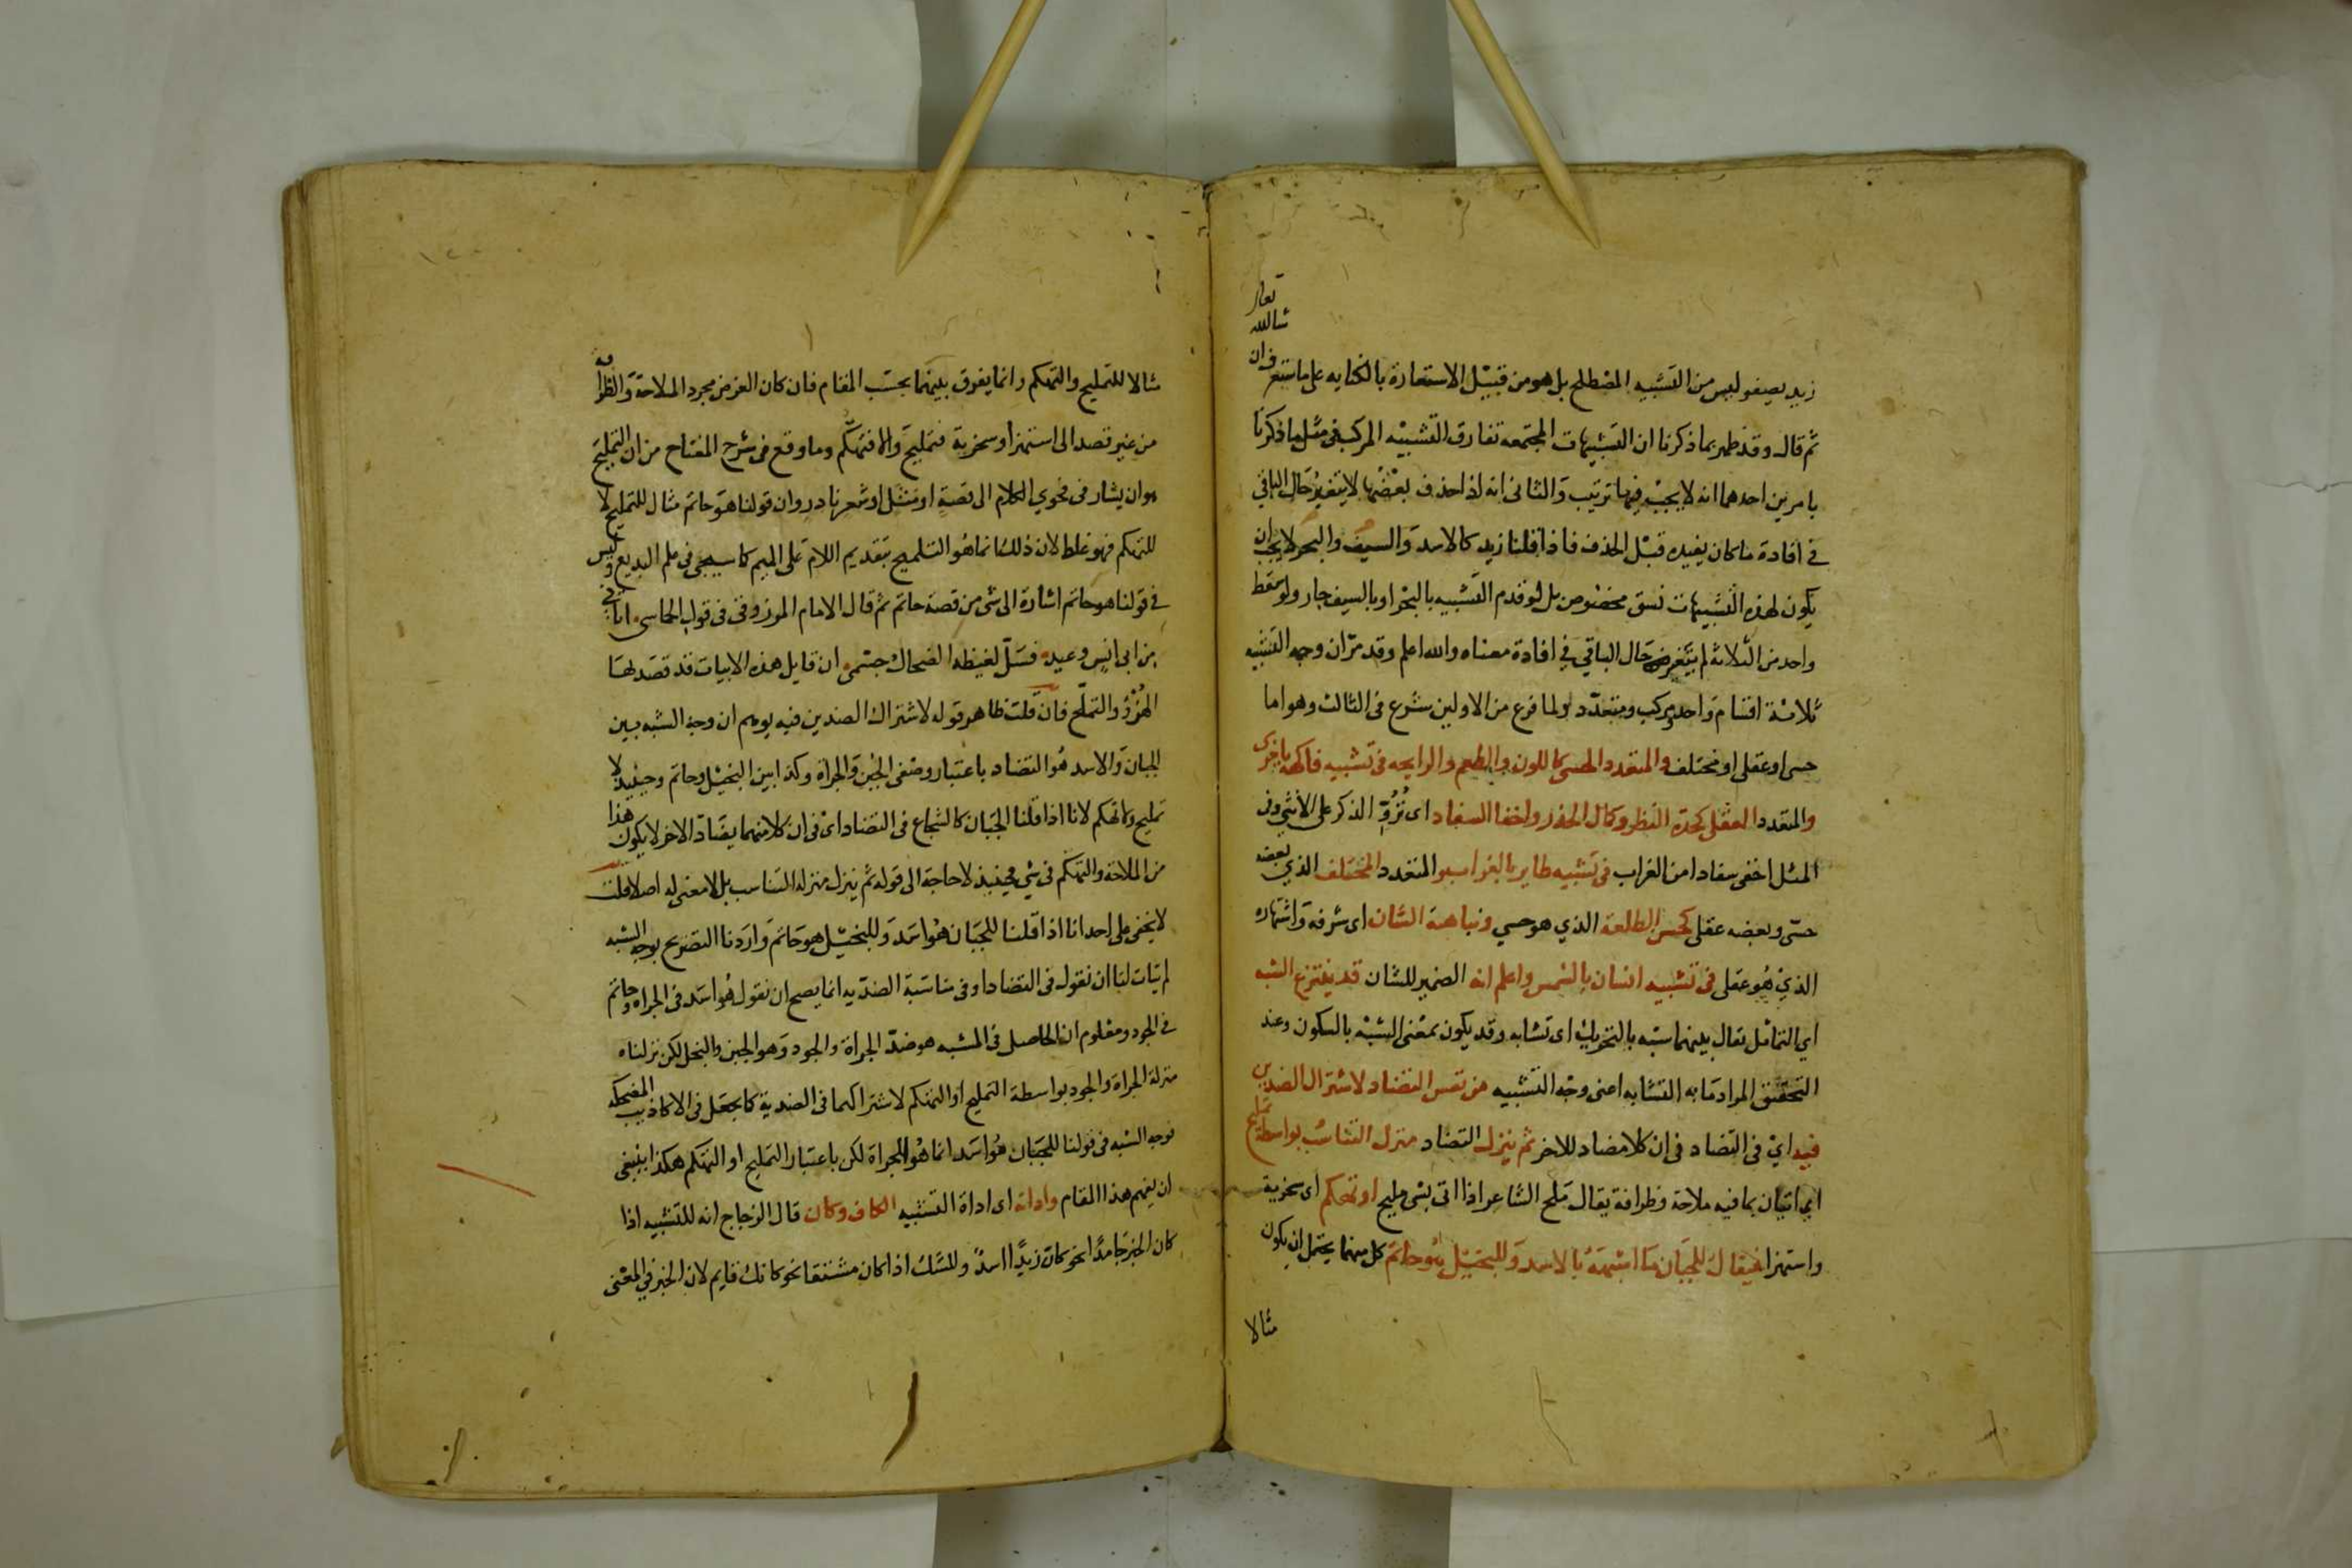 زيد يصفو ليس من التشبيه المصطلح بل هو من قبيل الاستعارة بالكنايه على ما ستعرف ان
شا الله
تعالى
ثم قال وقد ظهر بما ذكرنا ان التشبيهات المجتمعه تفارق التشبيه المركب فى مثل ما ذكرنا
بامرين احدهما انه لا يجب فيها ترتيب والثانى انه اذا حذف بعضها لا يتغير حال الباقي
في افادة ما كان يفيده قبل الحذف فاذا قلنا زيد كالاسد والسيف والبحر لا يجب ان
يكون لهذه التشبيهات نسق مخصوص بل لو قدم التشبيه بالبحر او بالسيف جاز ولو سقط
واحد من الثلاثة لم يتغير حال الباقي في افادة معناه والله اعلم وقد مرّ ان وجه التشبيه
ثلاثة اقسام واحد ومركب ومتعدّد ولما فرغ من الاولين شرع فى الثالث وهو اما
حسى او عقلى او مختلف والمتعدد الحسى كاللون والطعم والرايحه فى تشبيه فاكهة باخرى
والمتعدد العقلى كحدّة النظر وكمال الحذر واخفا السفاد اى نزوّ الذكر على الانثى وفى
المثل اخفى سفادا من الغراب فى تشبيه طاير بالغراب والمتعدد المختلف الذي بعضه
حسّى وبعضه عقلى كحسن الطلعة الذي هو حسي ونباهة الشان اى شرفه واشتهاره
الذي هو عقلى فى تشبيه انسان بالشمس واعلم انه الضمير للشان قد ينتزع الشبه
اي التماثل يقال بينهما شبه بالتحريك اى تشابه وقد يكون بمعنى الشبه بالسكون وعند
التحقيق المراد ما به التشابه اعنى وجه التشبيه من نفس التضاد لاشتراك الضدين
فيه اي فى التضاد فى ان كلا مضاد للاخر ثم ينزل التضاد منزلة التناسب بواسطة تمليح
اي اتيان بما فيه ملاحة وظرافة يقال ملح الشاعر اذا اتى بشى مليح او تهكم اى سخرية
واستهزا فيقال للجبان ما اشبهه بالاسد وللبخيل هو حاتم كل منهما يحتمل ان يكون
مثالا
مثالا للتمليح والتهكم وانما يفرق بينهما بحسب المقام فان كان الغرض مجرد الملاحة والظرافه
من غير قصد الى استهزا وسخرية فتمليح والا فتهكّم وما وقع فى شرح المفتاح من ان التمليح
هو ان يشار فى فحوي الكلام الى قصة او مثل او شعر نادر وان قولنا هو حاتم مثال للتمليح لا
للتهكم فهو غلط لان ذلك انما هو التلميح بتقديم اللام على الميم كما سيجى فى علم البديع وليس
في قولنا هو حاتم اشارة الى شى من قصة حاتم ثم قال الامام المرزوقى فى قول الحماسى اتانى
من ابى انس وعيد فسلّ لغيظه الضحاك جسمى ان قايل هذه الابيات قد قصد لها
الهزؤ والتملّح فان قلت ظاهر قوله لاشتراك الضدين فيه يوهم ان وجه الشبه بين
الجبان والاسد هو التضاد باعتبار وصفى الجبن والجراة وكذا بين البخيل وحاتم وحينيذ لا
تمليح ولا تهكم لانا اذا قلنا الجبان كالشجاع فى التضاد اى فى ان كلا منهما يضادّ الاخر لا يكون هذا
من الملاحة والتهكم فى شي فحينيذ لا حاجة الى قوله ثم ينزل منزلة التناسب بل لا معنى له اصلا قلت
لا يخفى على احد انا اذا قلنا للجبان هو اسد وللبخيل هو حاتم واردنا التصريح بوجه الشبه
لم يتات لنا ان نقول فى التضاد او فى مناسبة الضدّيه انما يصح ان نقول هو اسد فى الجراه وحاتم
في الجود ومعلوم ان الحاصل فى المشبه هو ضدّ الجراة والجود وهو الجبن والبخل لكن نزلناه
منزلة الجراة والجود بواسطة التمليح او التهكم لاشتراكهما فى الضدية كما يجعل فى الاكاذيب المضحكه
فوجه الشبه فى قولنا للجبان هو اسد انما هو الجراة لكن باعتبار التمليح او التهكم هكذا ينبغى
ان يفهم هذا المقام واداته اى اداة التشبيه الكاف وكان قال الزجاج انه للتشبيه اذا
كان الخبر جامدًا نحو كان زيدًا اسدٌ وللشك اذا كان مشتقا نحو كانك قايم لان الخبر في المعنى